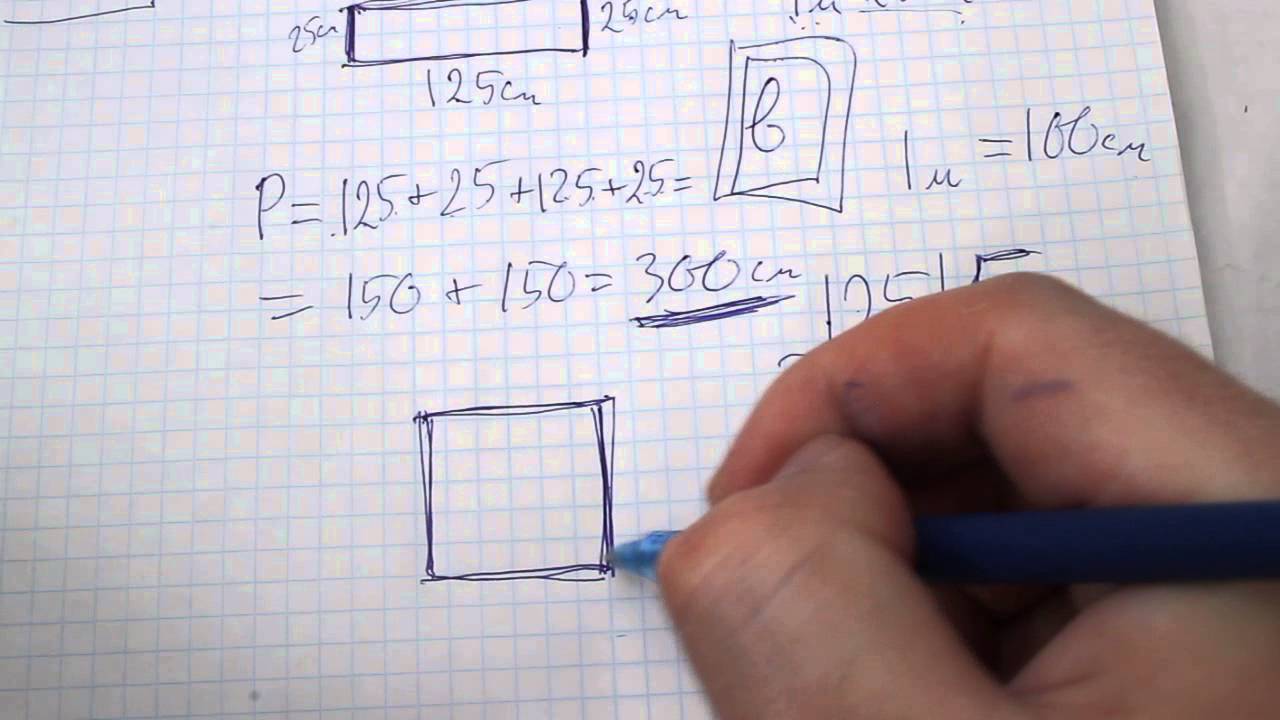 25см 25см
1м
125см
P = 125 + 25 + 125 + 25 =
в
1м = 100см
= 150 + 150 = 300см
125 5